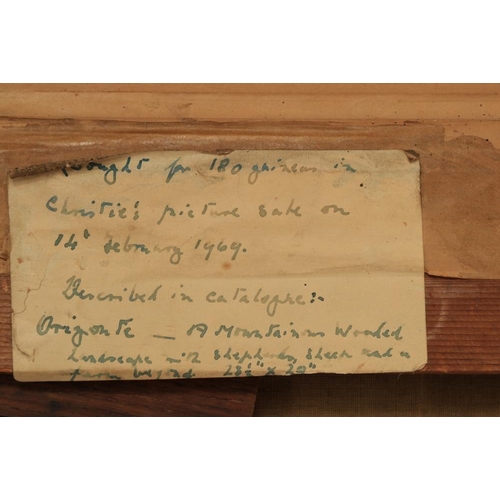 Bought for 180 guineas in
Christie's picture sale on
14th February 1969.
Described in catalogue:-
Orizonte — A Mountainous Wooded
Landscape with Shepherds, Sheep and a
farm beyond 23½" x